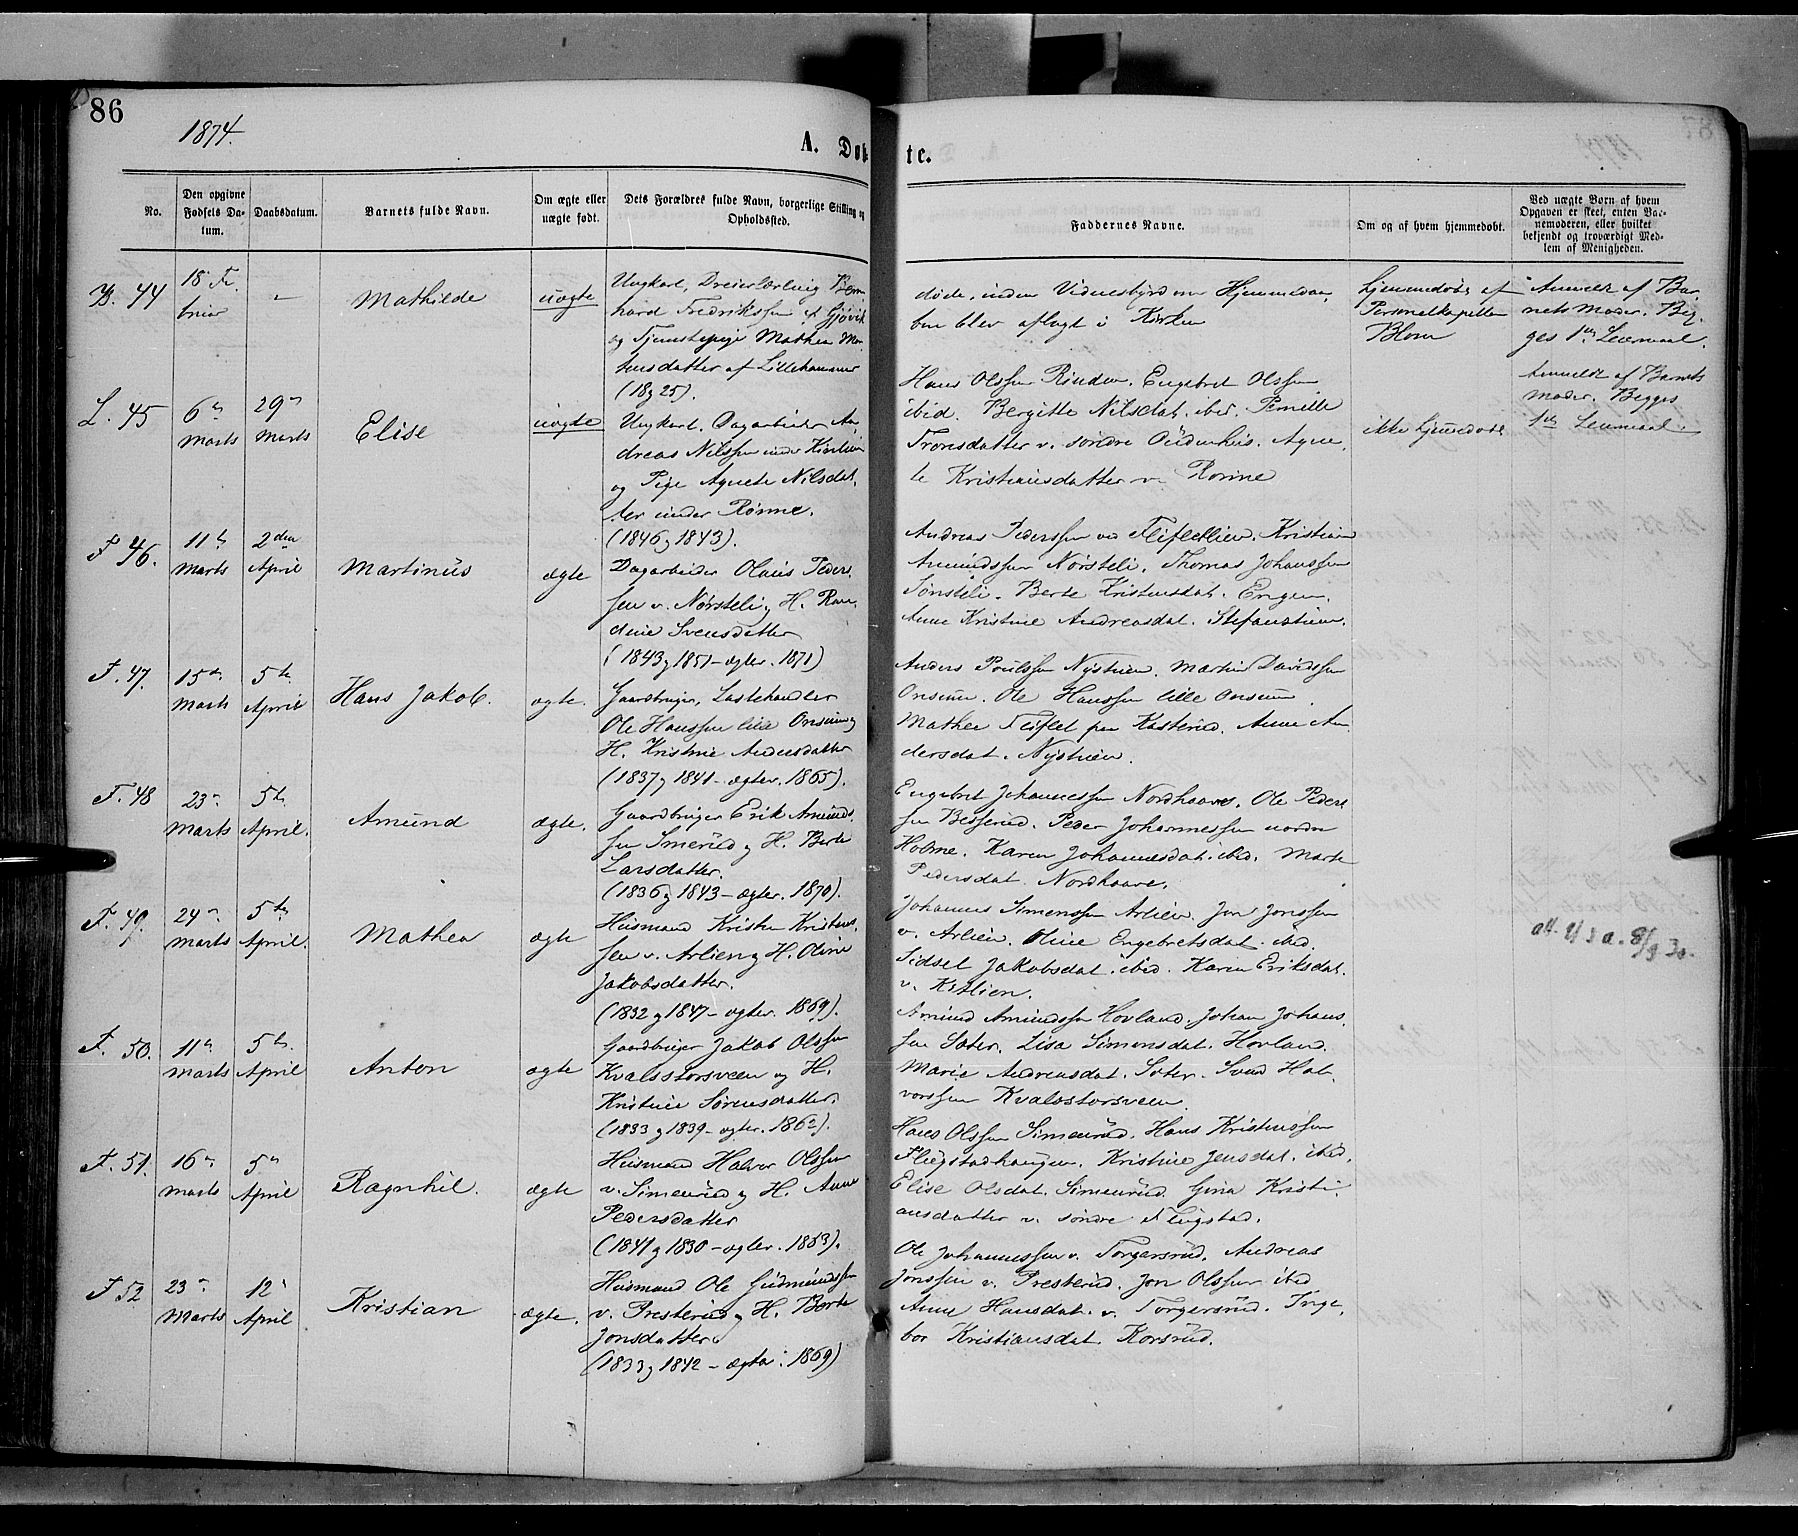 86
1874.
A. Døb
te.
No.
Den opgivne Fødsels Da-tum.
Daabsdatum.
Barnets fulde Navn.
Om ægte eller uægte født.
Dets Forældres fulde Navn, borgerlige Stilling og Opholdssted.
Faddernes Navne.
Om og af hvem hjemmedøbt.
Ved uægte Børn af hvem Opgaven er skeet, enten Bar-nemoderen, eller hvilket bekjendt og troværdigt Med-lem af Menigheden.
B. 44
18 Fe
bruar
Mathilde
uægte
Ungkarl, Dreierlærling Bern
hard Fredrikssen af Gjøvik
og Tjenestepige Mathea Mor
tensdatter af Lillehammer
(18 g 25).
døde, inden Vidnesbyrd om Hjemmedaa
ben blev aflagt i Kirken
hjemmedøbt af
Personelkapellan
Blom
Anmeldt af Bar
nets Moder. Beg
ges 1ste Leiermaal.
L. 45
6te
Marts
29de
Marts
Elise
uægte
Ungkarl, Dagarbeider An
dreas Nilssen under
og Pige Agnete Nilsdat
ter under Rønne.
(1846 g 1843).
Hans Olssen Rinden. Engebret Olssen
ibid. Bergitte Nilsdat. ibid. Pernille
Tronsdatter v. søndre
Agne
te Kristiansdatter v. Rønne
ikke hjemmedøbt
Anmeldt af Barnets
Moder. Begges
1ste Leiermaal.
F. 46.
11te
Marts
2den
April
Martinus
ægte
Dagarbeider Olaus Peders
sen v. Nørsteli g H. Ran
dine Svensdatter
(1843 g 1851 - ægtev. 1871)
Andreas Pederssen v.
Kristian
Amundssen Nørsteli. Thomas Johanssen
Sønsteli. Berte Kristensdat. Engen.
Anne Kristine Andreasdat. Stefanstuen.
F. 47.
15de
Marts
5te
April
Hans Jakob.
ægte.
Gaardbruger, Lastehandler
Ole Hanssen lille Onsum g
H. Kristine Andersdatter
(1837 g 1841 - ægtev. 1865).
Anders Poulssen Nystuen. Martin Davidssen
Onsum. Ole Hanssen lille Onsum.
Mathea Fliflet paa Kasterud. Anne An
dersdat. Nystuen.
F. 48
23de
Marts
5te
April.
Amund
ægte.
Gaardbruger Erik Amunds
sen Smerud g H. Berte
Larsdatter.
(1836 g 1843 - ægtev. 1870).
Engebret Johannessen Nordhaave. Ole Peders
sen Besserud. Peder Johannessen nordre
Holme. Karen Johannesdat. ibid. Marte
Pedersdat. Nordhaave.
F. 49.
24de
Marts
5te
April.
Mathea
ægte
Husmand Kristen Kristens
sen v. Arlien g H. Oline
Jakobsdatter.
(1832 g 1847 - ægtev. 1869).
Johannes Simenssen Arlien. Jon Jonssen
v. Arlien. Oline Engebretsdat. ibid.
Sidsel Jakobsdat. ibid. Karen Eriksdat.
v. Kitlien.
F. 50.
11te
Marts
5te
April
Anton
ægte
Gaardbruger Jakob Olssen
Kvalsstorsveen og H.
Kristine Sørensdatter.
(1833 g 1839 - ægtev. 1862).
Amund Amundssen Hovland. Johan Johans
sen Sater. Lisa Simensdat. Hovland.
Marie Andreasdat. Sater. Svend Hal
vorssen Kvalsstorsveen
F. 51.
16de
Marts
5te
April
Ragnhil.
ægte
Husmand Halvor Olssen
v. Simenrud g H. Anne
Pedersdatter
(1841 g 1830 - ægtev. 1863).
Hans Olssen Simenrud. Hans Kristenssen
Flugstadhaugen. Kristine Jensdat. ibid.
Elise Olsdat. Simenrud. Gina Kristi
ansdatter v. søndre Flugstad.
F 52
23de
Marts
12
April
Kristian
ægte.
Husmand Ole Gudmundssen
v. Presterud g H. Berte
Jonsdatter
(1833 g 1842 - ægtev. 1869)
Ole Johannessen v. Torgersrud. Andreas
Jonssen v. Presterud. Jon Olssen ibid
Anne Hansdat. v. Torgersrud. Inge
bor Kristiansdat. Korsrud.